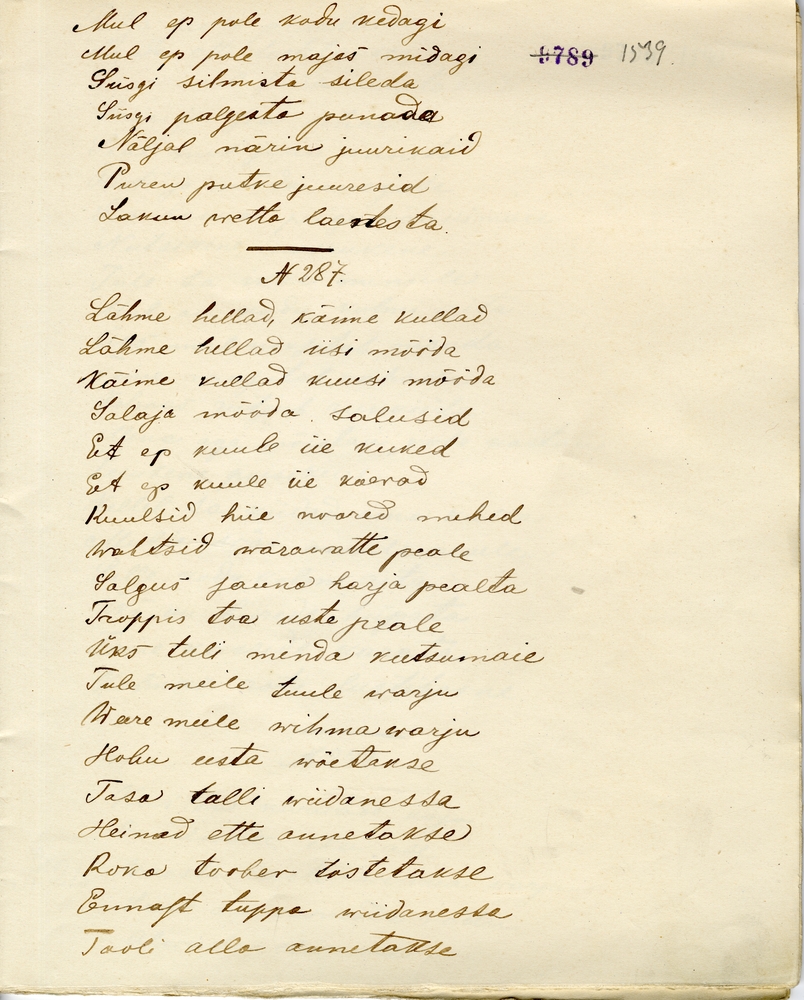 Mul ep pole kodu kedagi
Mul ep pole majas midagi
9789 1539.
Süsgi silmista sileda
Süsgi palgesta punada
Näljal närin juurikaid
Puren putke juuresid
Lakun wetta laentesta.
N 287.
Lähme hellad, käime kullad
Lähme hellad üsi mööda
Käime kullad kuusi mööda
Salaja mööda salusid
Et ep kuule üe kuked
Et ep kuule üe koerad
Kuulsid hüe noored mehed
Wahtsid wärawatte peale
Salgus sauna harja pealta
Troppis toa uste peale
Üks tuli minda kutsumaie
Tule meile tuule warju
Weere meile wihma warju
Hobu eesta wõetakse
Tasa talli wiidanessa
Heinad ette annetakse
Roka toober tõstetakse
Ennast tuppa wiidanessa
Tooli alla annetakse